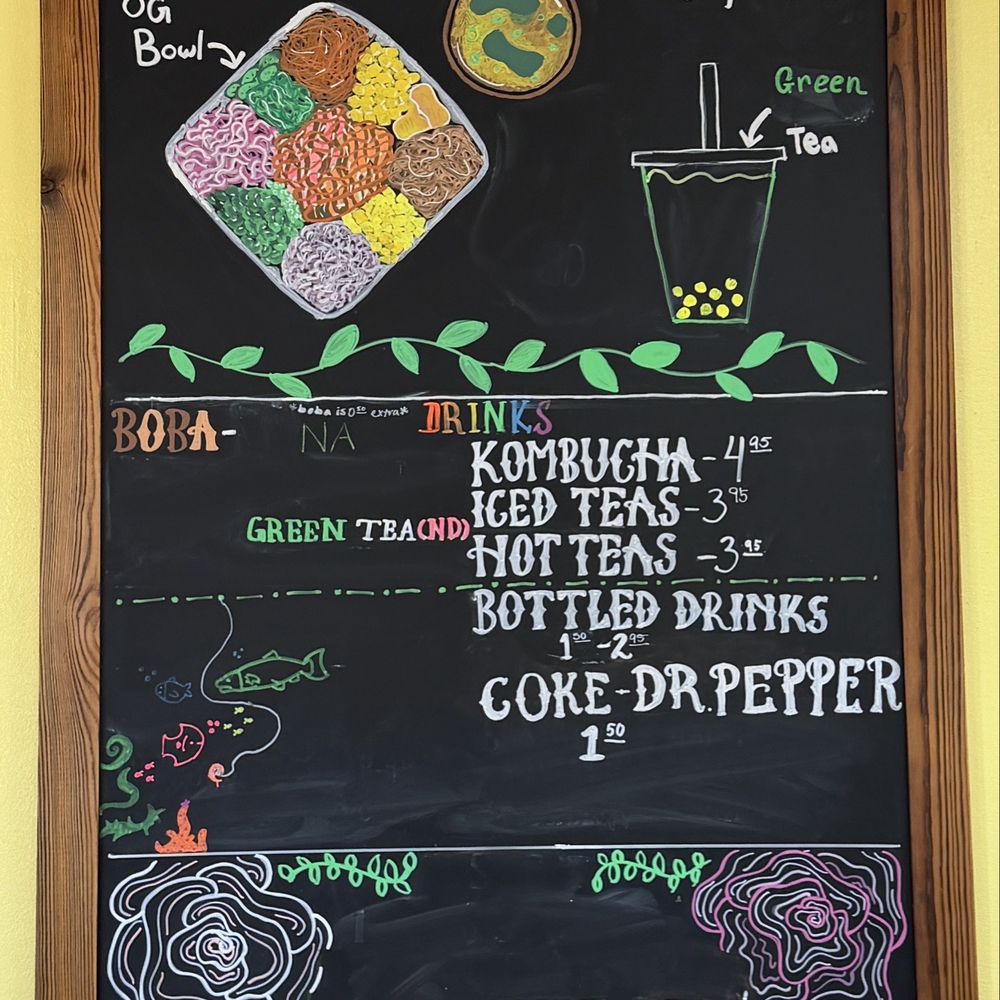 OG
Bowl
Green
Tea
*boba is 0⁵⁰ extra*
BOBA-
NA
DRINKS
KOMBUCHA-4⁹⁵
ICED TEAS-3⁹⁵
GREEN TEA(ND)
HOT TEAS -3⁹⁵
BOTTLED DRINKS
1⁵⁰-2⁹⁵
COKE-DR.PEPPER
1⁵⁰